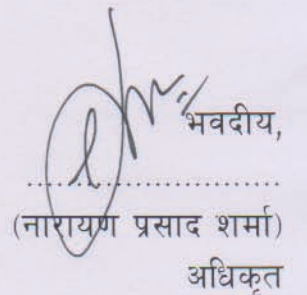 भवदीय,
..............................
(नारायण प्रसाद शर्मा)
अधिकृत